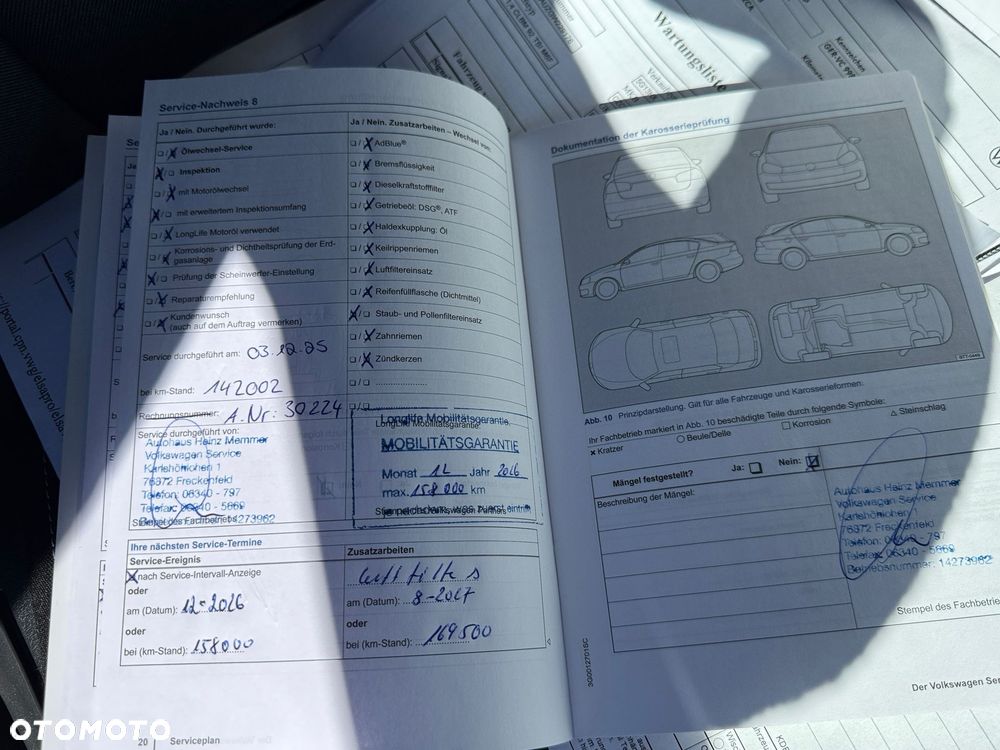 Wartungsliste
Kennzeichen
GER-VC 99
Fahrzeug
Service-Nachweis 8
Ja / Nein. Durchgeführt wurde:
Ölwechsel-Service
Inspektion
mit Motorölwechsel
mit erweitertem Inspektionsumfang
LongLife Motoröl verwendet
Korrosions- und Dichtheitsprüfung der Erd-
gasanlage
Prüfung der Scheinwerfer-Einstellung
Reparaturempfehlung
Kundenwunsch
(auch auf dem Auftrag vermerken)
Service durchgeführt am: 03.12.25
bei km-Stand: 142002
Rechnungsnummer: A.Nr: 30224
Service durchgeführt von:
Autohaus Heinz Memmer
Volkswagen Service
Karlshörnchen 1
76872 Freckenfeld
Telefon: 06340 - 797
Telefax: 06340 - 5869
Stempel des Fachbetriebs 14273962
Ja / Nein. Zusatzarbeiten – Wechsel von:
AdBlue®
Bremsflüssigkeit
Dieselkraftstofffilter
Getriebeöl: DSG®, ATF
Haldexkupplung: Öl
Keilrippenriemen
Luftfiltereinsatz
Reifenfüllflasche (Dichtmittel)
Staub- und Pollenfiltereinsatz
Zahnriemen
Zündkerzen
Longlife Mobilitätsgarantie
LongLife Mobilitätsgarantie
MOBILITÄTSGARANTIE
Monat 12 Jahr 2026
max. 158 000 km
Ihre nächsten Service-Termine
Service-Ereignis
nach Service-Intervall-Anzeige
oder
am (Datum): 12-2026
oder
bei (km-Stand): 158000
Zusatzarbeiten
Luftfilter
am (Datum): 8-2027
oder
bei (km-Stand): 169500
20 Serviceplan
Dokumentation der Karosserieprüfung
B7T-0449
Abb. 10 Prinzipdarstellung. Gilt für alle Fahrzeuge und Karosserieformen.
Ihr Fachbetrieb markiert in Abb. 10 beschädigte Teile durch folgende Symbole:
× Kratzer ○ Beule/Delle □ Korrosion △ Steinschlag
Mängel festgestellt? Ja: Nein:
Beschreibung der Mängel:
Autohaus Heinz Memmer
Volkswagen Service
Karlshörnchen 1
76872 Freckenfeld
Telefon: 06340 - 797
Telefax: 06340 - 5869
Betriebsnummer: 14273962
Stempel des Fachbetrie
3G0012701SC
Der Volkswagen Ser
OTOMOTO